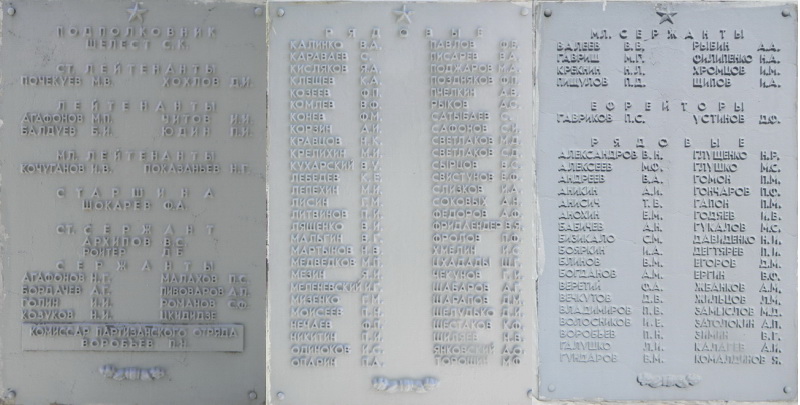 ПОДПОЛКОВНИК
ШЕЛЕСТ С.К.
СТ. ЛЕЙТЕНАНТЫ
ПОЧЕКУЕВ М.В. ХОХЛОВ Д.И.
ЛЕЙТЕНАНТЫ
АГАФОНОВ М.П. ЧИТОВ И.И.
БАЛДУЕВ Б.И. ЮДИН П.И.
МЛ. ЛЕЙТЕНАНТЫ
КОЧУГАНОВ Н.В. ПОКАЗАНЬЕВ Н.Г.
СТАРШИНА
ШОКАРЕВ Ф.А.
СТ. СЕРЖАНТ
АРХИПОВ В.С.
РОЙТЕР Д.Б.
СЕРЖАНТЫ
АГАФОНОВ Н.Г. МАННАХОВ П.С.
БОРДАЧЕВ А.Г. ПИВОВАРОВ А.П.
ГОЛИН И.И. РОМАНОВ С.Ф.
КОЗУХОВ Н.И.
КОМИССАР ПАРТИЗАНСКОГО ОТРЯДА
ВОРОБЬЕВ П.Н.
РЯДОВЫЕ
КАЛИНКО В.Д. ПАВЛОВ Ф.Е.
КАРАВАЕВ С. ПИСАРЕВ В.А.
КИСЛЯКОВ Я.А. ПОДЖАРОВ И.А.
КЛЕЩЕВ К.А. ПОЗДНЯКОВ Ф.П.
КОЗЕЕВ Ф.П. ПЧЕЛКИН А.В.
КОМЛЕВ В.Ф. РЫКОВ А.С.
КОНЕВ Ф.М. САТЫБАЕВ С.
КОРЗИН А.И. САФОНОВ С.И.
КРАВЦОВ Н.К. СВЕТЛАКОВ М.Д.
КРЕПИХИН М.И. СВЕТЛАКОВ С.Д.
КУХАРСКИЙ В.У. СЫРЦОВ В.С.
ЛЕБЕДЕВ С.Е. СВИСТУНОВ В.Ф.
ЛЕПЕХИН М.И. СЛИЗКОВ И.А.
ЛИСИН Г.М. СОКОВЫХ А.Н.
ЛИТВИНОВ П.И. ФЕДОРОВ А.Ф.
ЛЯЩЕНКО В.И. ФРИДЛЕНДЕР В.Я.
МАЛЫГИН В.Т. ФРОЛОВ П.Ф.
МАРТЫНОВ Н.В. И.С.
МЕДВЕДКОВ И.Т. М.Г.
МЕЗИН Я.И. ЧЕКУНОВ Г.И.
МЕЛЕНЕВСКИЙ И.Г. ШАБАРОВ А.К.
МИЗЕНКО Г.М. ШАРАПОВ Д.М.
МОИСЕЕВ П.Н. ШЕЛУДЬКО Д.И.
НЕЧАЕВ Ф.Г. ШЕСТАКОВ К.Ф.
НИКИТИН П.И. ШИЛЯЕВ Н.В.
ОДИНОКОВ К.С. ЯНКОВСКИЙ А.Ф.
ОПАРИН Г.А. ТОРОШИН М.Г.
МЛ. СЕРЖАНТЫ
ВАЛЕЕВ В.В. РЫБИН А.А.
ГАВРИШ М.Г. ФИЛИПЕНКО Н.А.
КРЕКНИН Н.Л. ХРОМЦОВ И.М.
ПИЩУЛОВ П.Д. ЩИПОВ И.А.
ЕФРЕЙТОРЫ
ГАВРИКОВ П.С. УСТИНОВ Д.Ф.
РЯДОВЫЕ
АЛЕКСАНДРОВ В.Н. ГЛУЩЕНКО Н.Р.
АЛЕКСЕЕВ М.Ф. ГЛУШКО М.С.
АНДРЕЕВ В.А. ГОМОН П.М.
АНИКИН А.И. ГОНЧАРОВ П.Ф.
АНИСИЧ Т.В. ГАПОН П.М.
АНОХИН Е.М. ГОДЯЕВ И.В.
БАБИЧЕВ А.Н. ГУКАЛОВ М.С.
БИЗИКАЛО С.М. ДАВИДЕНКО Н.И.
БОЯРКИН И.А. ДЕГТЯРЕВ П.И.
БЛИНОВ В.М. ЕГОРОВ Д.М.
БОГДАНОВ А.М. ЕРГИН В.Ф.
ВЕРЕТИЙ Ф.А. ЖБАНКОВ А.М.
ВЕЧКУТОВ Д.В. ЖИЛЬЦОВ Л.М.
ВЛАДИМИРОВ П.В. ЗАМЫСЛОВ М.Д.
ВОЛОСНИКОВ И.Е. ЗАТОЛОКИН А.П.
ВОРОБЬЕВ П.Н. ЗИМИН В.Г.
ГАЛУШКО Л.И. КАЛАГЕВ А.Н.
ГУНДАРОВ В.М. КОМАЛДИНОВ Я.